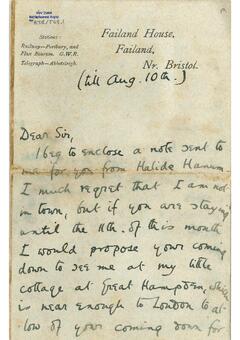 Stations:
Railway—Portbury, and
Flax Bourton. G.W.R.
Telegraph—Abbotsleigh.
Failand House,
Failand,
Nr. Bristol.
(till Aug. 10th.)
Dear Sir,
I beg to enclose a note sent to
me for you from Halide Hanum.
I much regret that I am not
in town, but if you are staying
until the 11th. of this month
I would propose your coming
down to see me at my little
cottage at Great Hampden, which
is near enough to London to al-
low of your coming down for